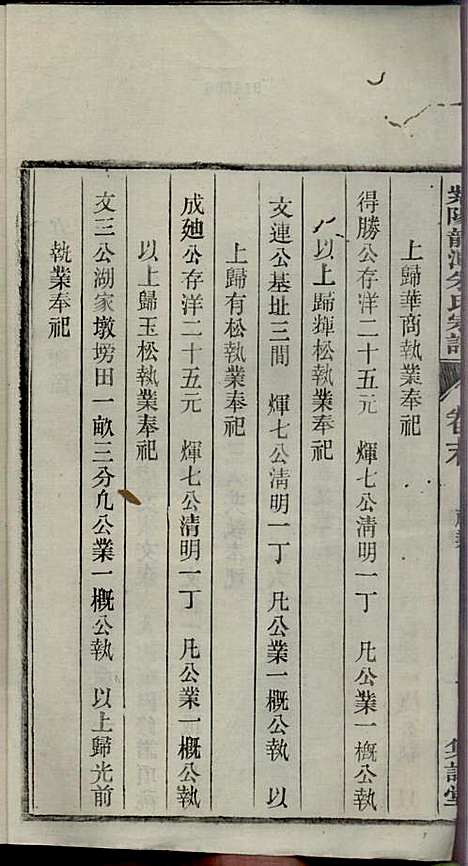 上歸華商執業奉祀
得勝公存洋二十五元 煇七公清明一丁 凡公業一概公執
以上歸輝松執業奉祀
文連公基址三間 煇七公清明一丁 凡公業一概公執 以
上歸有松執業奉祀
成廸公存洋二十五元 煇七公清明一丁 凡公業一概公執
以上歸玉松執業奉祀
文三公湖家墩塝田一畝三分凢公業一概公執 以上歸光前
執業奉祀